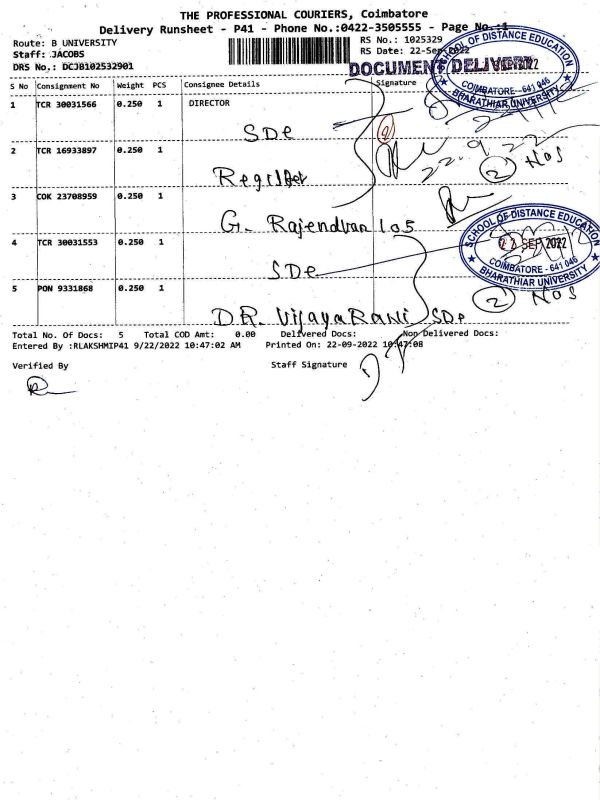 THE PROFESSIONAL COURIERS, Coimbatore
Delivery Runsheet - P41 - Phone No.:0422-3505555 - Page No.:1
Route: B UNIVERSITY
RS No.: 1025329
Staff: JACOBS
RS Date: 22-Sep-2022
DRS No.: DCJB102532901
DOCUMENT DELIVERY
SCHOOL OF DISTANCE EDUCATION
COIMBATORE - 641 046
BHARATHIAR UNIVERSITY
S No Consignment No Weight PCS Consignee Details Signature
1 TCR 30031566 0.250 1 DIRECTOR
SDe
2 TCR 16933897 0.250 1
22.9.22
2 NOS
3 COK 23708959 0.250 1
G. Rajendran 105
4 TCR 30031553 0.250 1
SDe
SCHOOL OF DISTANCE EDUCATION
22 SEP 2022
COIMBATORE - 641 046
BHARATHIAR UNIVERSITY
2 NOS
5 PON 9331868 0.250 1
DR. VijayaRANi SDe
Total No. Of Docs: 5 Total COD Amt: 0.00 Delivered Docs: Non Delivered Docs:
Entered By :RLAKSHMIP41 9/22/2022 10:47:02 AM Printed On: 22-09-2022 10:47:08
Verified By Staff Signature